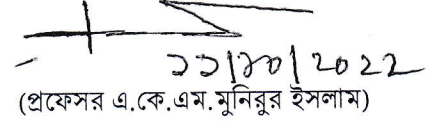 ১১/১০/২০২২
(প্রফেসর এ.কে.এম.মুনিরুর ইসলাম)